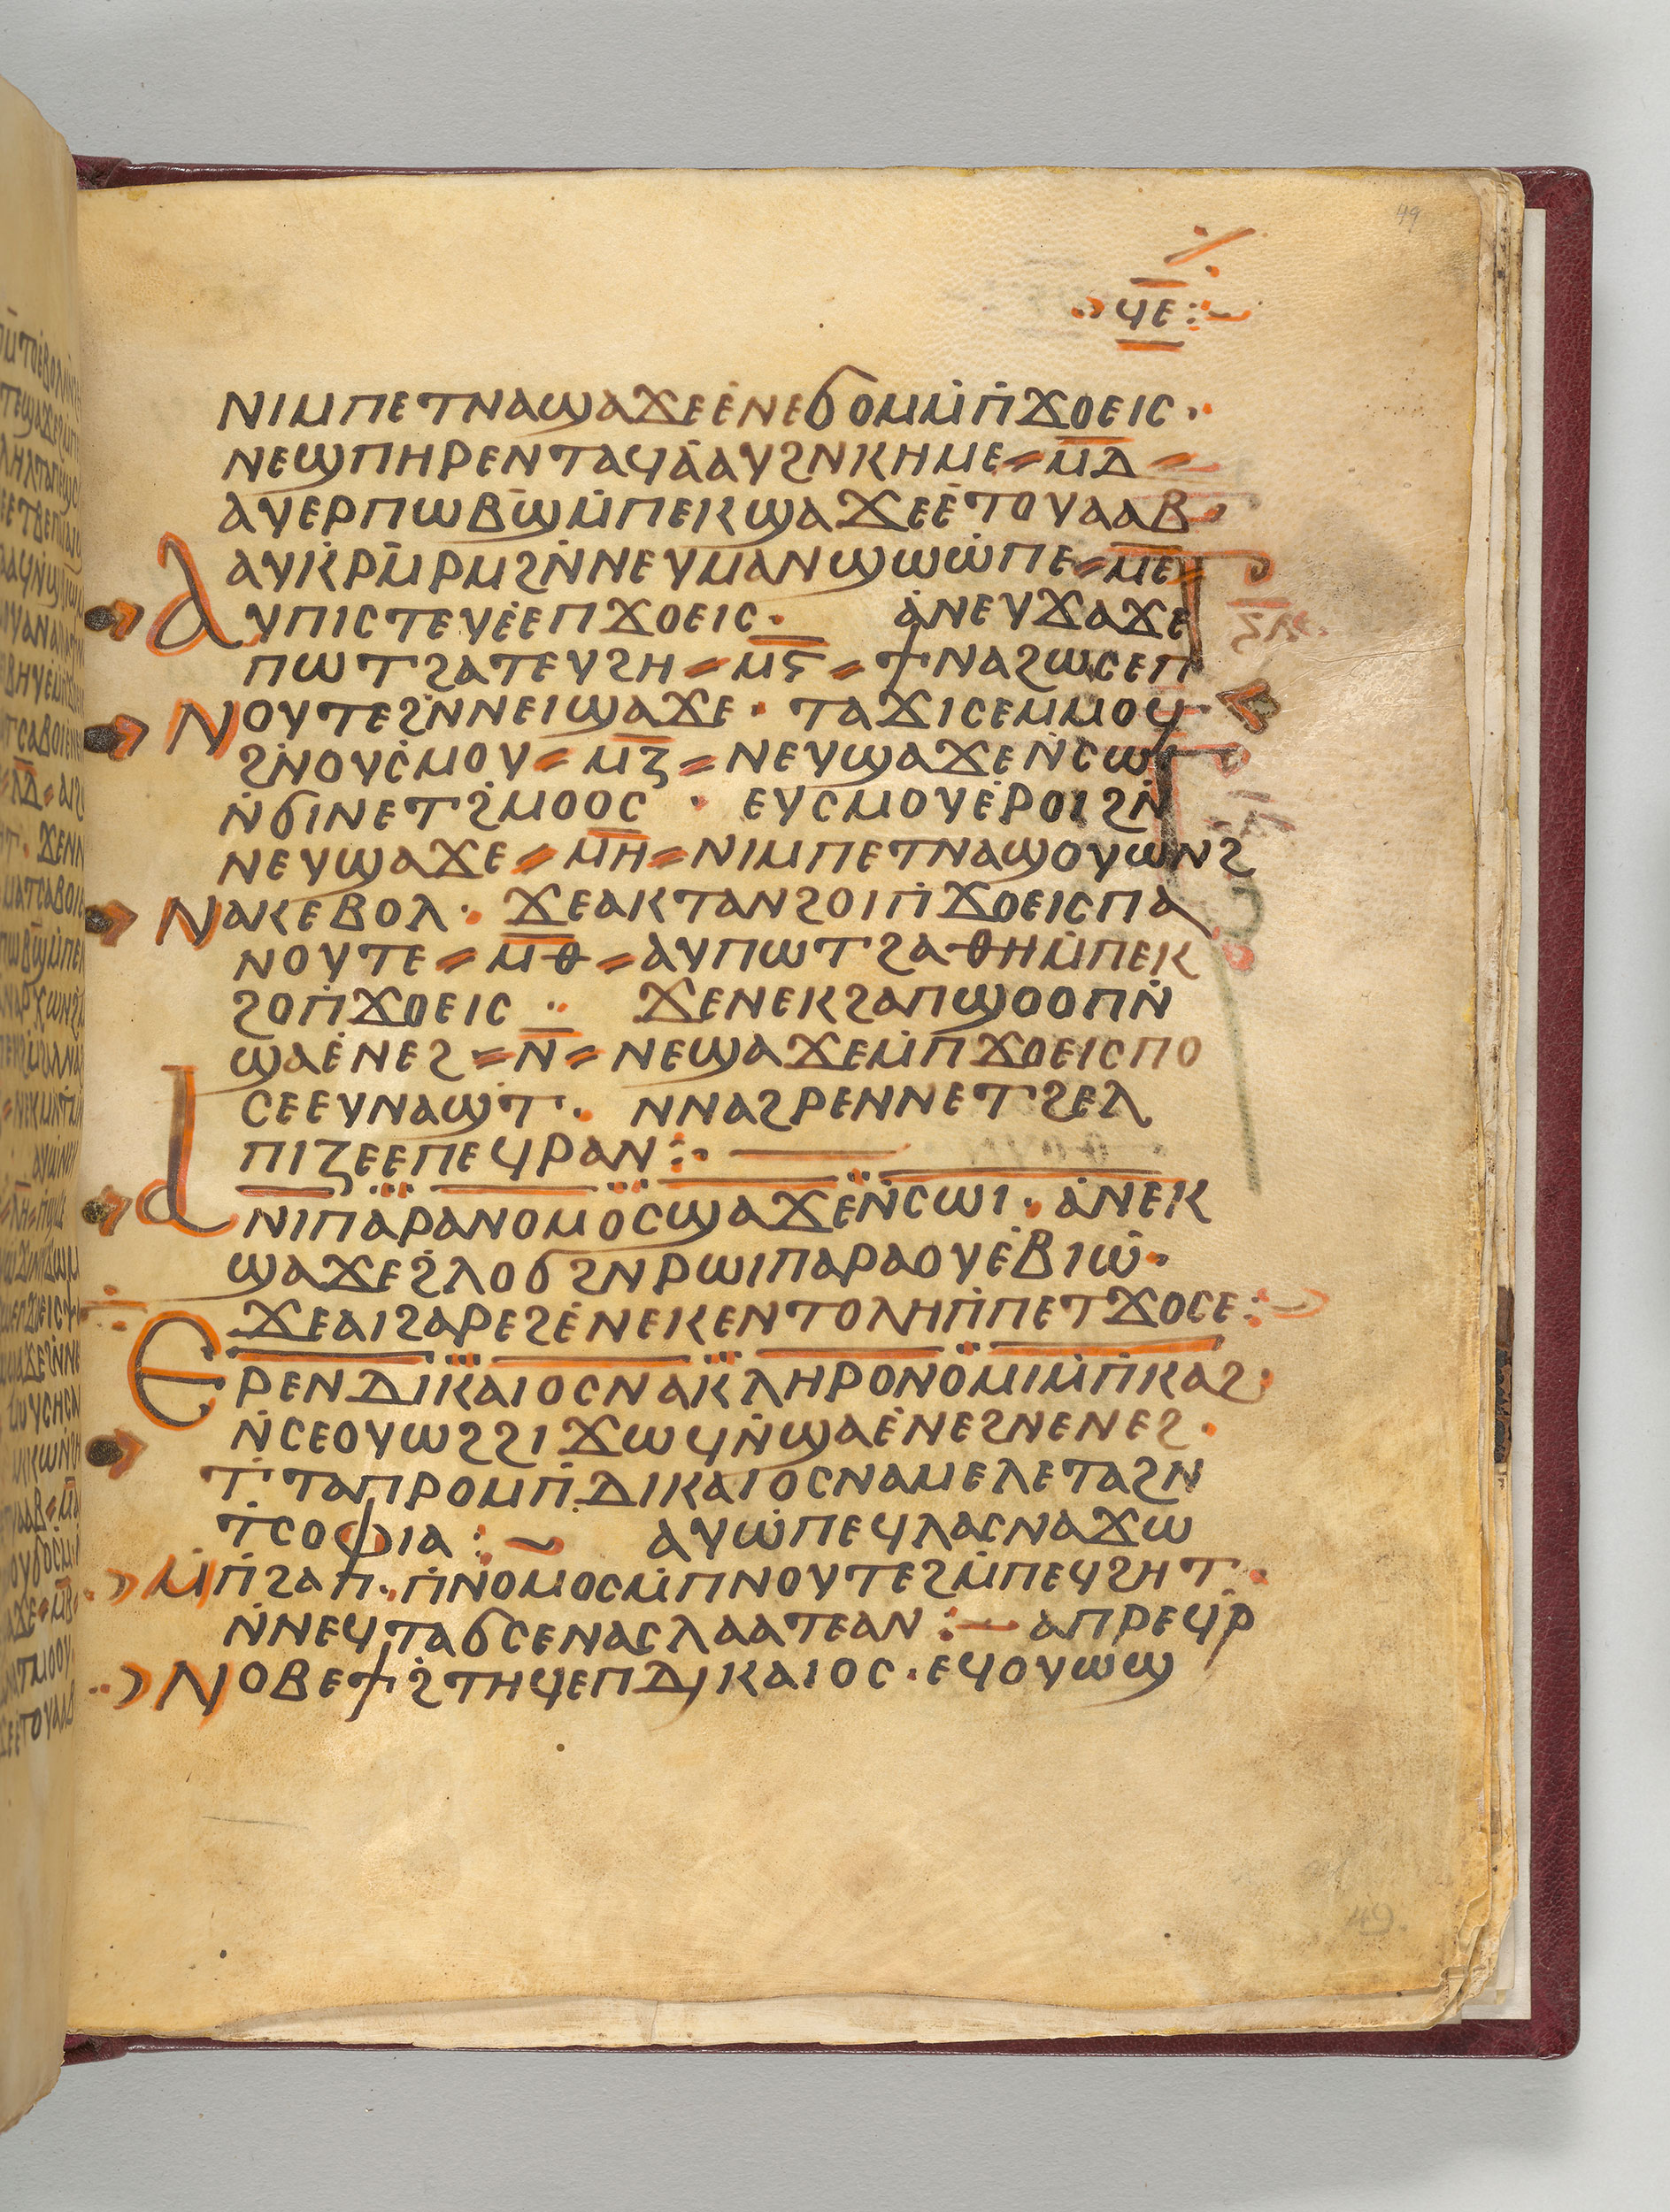 49
ϥⲉ
ⲛⲓⲙⲡⲉⲧⲛⲁϣⲁϫⲉⲉ̇ⲛⲉϭⲟⲙⲙ̇ⲡ̇ϫⲟⲉⲓⲥ·
ⲛⲉϣⲡⲏⲣⲉⲛⲧⲁϥⲁ̇ⲁⲩϩⲛⲕⲏⲙⲉ⸗ⲙ̅ⲇ̅⸗
ⲁⲩⲉⲣⲡⲱⲃϣ̇ⲙ̇ⲡⲉⲕϣⲁϫⲉⲉ̇ⲧⲟⲩⲁⲁⲃ
ⲁⲩⲕ̇ⲣⲙ̇ⲣⲙϩⲛ̇ⲛⲉⲩⲙⲁⲛϣⲱⲱ̇ⲡⲉ⸗ⲙ̅ⲉ̅⸗
ⲁⲩⲡⲓⲥⲧⲉⲩⲉ̇ⲉⲡϫⲟⲉⲓⲥ· ⲁ̇ⲛⲉⲩϫⲁϫⲉ
ⲡⲱⲧϩⲁⲧⲉⲩϩⲏ⸗ⲙ̅ⲋ̅⸗ϯⲛⲁϩⲱⲥⲉⲡ
ⲛⲟⲩⲧⲉϩⲛ̇ⲛⲉⲓϣⲁϫⲉ· ⲧⲁϫⲓⲥⲉⲙⲙⲟϥ
ϩⲛ̇ⲟⲩⲥ̇ⲙⲟⲩ⸗ⲙ̅ⲍ̅⸗ⲛⲉⲩϣⲁϫⲉⲛ̇ⲥⲱⲓ
ⲛ̇ϭⲓⲛⲉⲧϩ̇ⲙⲟⲟⲥ · ⲉⲩⲥⲙⲟⲩⲉ̇ⲣⲟⲓϩⲛ̇
ⲛⲉⲩϣⲁϫⲉ⸗ⲙ̅ⲏ̅⸗ⲛⲓⲙⲡⲉⲧⲛⲁϣⲟⲩⲱⲛϩ
ⲛⲁⲕⲉⲃⲟⲗ· ϫⲉⲁⲕⲧⲁⲛϩⲟⲓⲡ̇ϫⲟⲉⲓⲥⲡⲁ
ⲛⲟⲩⲧⲉ⸗ⲙ̅ⲑ̅⸗ⲁⲩⲡⲱⲧϩⲁⲑⲏⲙ̇ⲡⲉⲕ
ϩⲟⲡ̇ϫⲟⲉⲓⲥ ·· ϫⲉⲛⲉⲕϩⲁⲡϣⲟⲟⲡⲛ̇
ϣⲁⲉ̇ⲛⲉϩ⸗ⲛ̅⸗ⲛⲉϣⲁϫⲉⲙ̇ⲡϫⲟⲉⲓⲥⲡⲟ
ⲥⲉⲉⲩⲛⲁϣ̇ⲧ· ⲛⲛⲁϩⲣⲉⲛⲛⲉⲧϩⲉⲗ
ⲡⲓⲍⲉⲉⲡⲉϥⲣⲁⲛ:·
ⲁⲛⲓⲡⲁⲣⲁⲛⲟⲙⲟⲥϣⲁϫⲉ̇ⲛ̇ⲥⲱⲓ· ⲁ̇ⲛⲉⲕ
ϣⲁϫⲉϩ̇ⲗⲟϭϩⲛⲣⲱⲓⲡⲁⲣⲁⲟⲩⲉ̇ⲃⲓⲱ̇·
ϫⲉⲁⲓϩⲁⲣⲉϩⲉ̇ⲛⲉⲕⲉⲛⲧⲟⲗⲏⲡ̇ⲡⲉⲧϫⲟⲥⲉ:
ⲉⲣⲉⲛⲇⲓⲕⲁⲓⲟⲥⲛⲁⲕⲗⲏⲣⲟⲛⲟⲙⲓⲙ̇ⲡ̇ⲕⲁϩ
ⲛ̇ⲥⲉⲟⲩⲱϩϩⲓϫⲱϥⲛ̇ϣⲁⲉ̇ⲛⲉϩⲛⲉⲛⲉϩ·
ⲧ̇ⲧⲁⲡⲣⲟⲙⲡ̇ⲇⲓⲕⲁⲓⲟⲥⲛⲁⲙⲉⲗⲉⲧⲁϩⲛ
ⲧ̇ⲥⲟⲫⲓⲁ: ⲁⲩⲱ̇ⲡⲉϥⲗⲁⲥⲛⲁϫⲱ
ⲙ̇ⲡ̇ϩⲁⲡ·ⲡ̇ⲛⲟⲙⲟⲥⲙ̇ⲡⲛⲟⲩⲧⲉϩⲙ̇ⲡⲉϥϩⲏⲧ·
ⲛ̇ⲛⲉϥⲧⲁϭⲥⲉⲛⲁⲥⲗⲁⲁⲧⲉⲁⲛ: ⲁⲡⲣⲉϥⲣ̇
ⲛⲟⲃⲉϯϩ̇ⲧⲏϥⲉⲡⲇⲓⲕⲁⲓⲟⲥ·ⲉϥⲟⲩⲱϣ